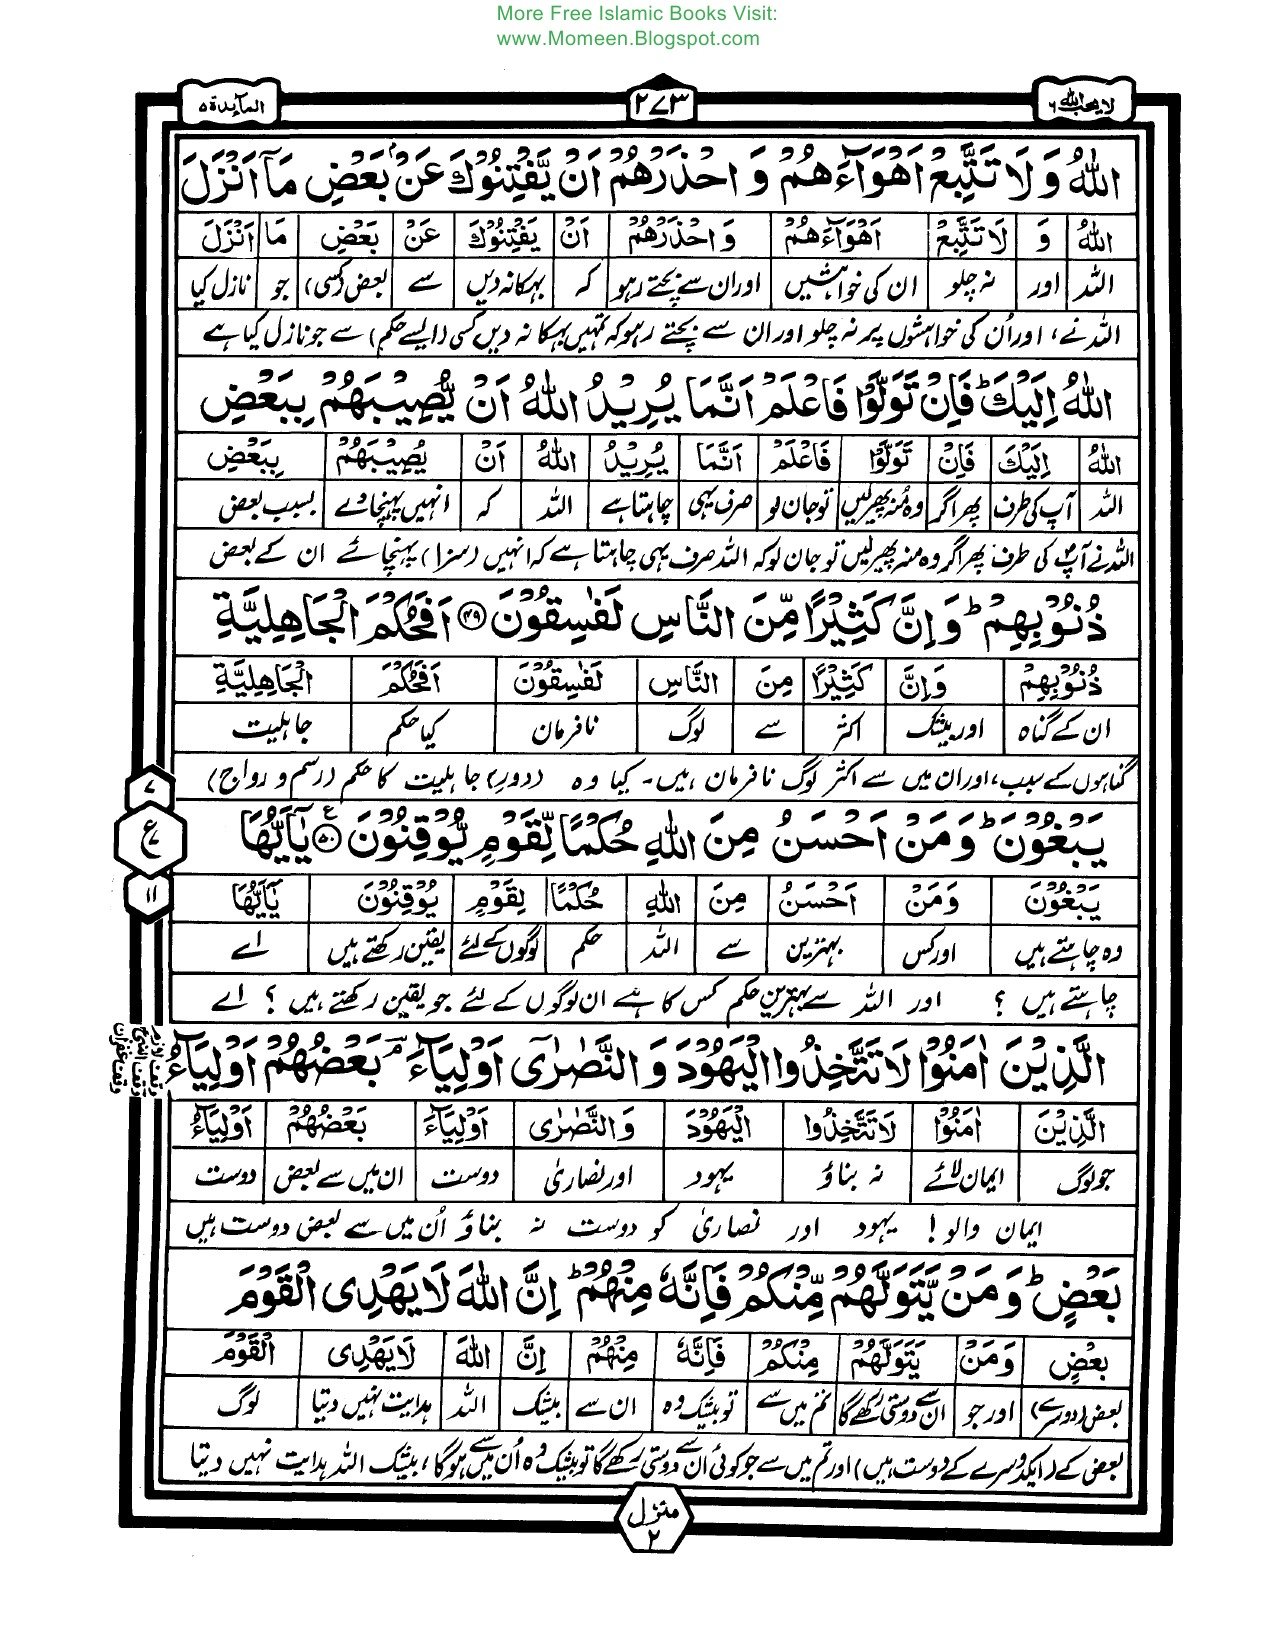 More Free Islamic Books Visit:
www.Momeen.Blogspot.com
لا یحب اللہ ۶ ۲۷۳ المآىِٕدة ۵
اللّٰهُ وَ لَا تَتَّبِعْ اَهْوَآءَهُمْ وَ احْذَرْهُمْ اَنْ یَّفْتِنُوْكَ عَنْۢ بَعْضِ مَاۤ اَنْزَلَ
اللّٰهُ وَ لَا تَتَّبِعْ اَهْوَآءَهُمْ وَ احْذَرْهُمْ اَنْ یَفْتِنُوْكَ عَنْ بَعْضِ مَا اَنْزَلَ
اللہ اور نہ چلو ان کی خواہشیں اور ان سے بچتے رہو کہ بہکا نہ دیں سے بعض (کسی) جو نازل کیا
اللہ نے، اور اُن کی خواہشوں پر نہ چلو اور ان سے بچتے رہو کہ تمہیں بہکا نہ دیں کسی (ایسے حکم) سے جو نازل کیا ہے
اللّٰهُ اِلَیْكَ ؕ فَاِنْ تَوَلَّوْا فَاعْلَمْ اَنَّمَا یُرِیْدُ اللّٰهُ اَنْ یُّصِیْبَهُمْ بِبَعْضِ
اللّٰهُ اِلَیْكَ فَاِنْ تَوَلَّوْا فَاعْلَمْ اَنَّمَا یُرِیْدُ اللّٰهُ اَنْ یُصِیْبَهُمْ بِبَعْضِ
اللہ آپ کی طرف پھر اگر وہ مُنہ پھیر لیں تو جان لو صرف یہی چاہتا ہے اللہ کہ انہیں پہنچا دے بسبب بعض
اللہ نے آپ کی طرف پھر اگر وہ منہ پھیر لیں تو جان لو کہ اللہ صرف یہی چاہتا ہے کہ انہیں (سزا) پہنچائے ان کے بعض
ذُنُوْبِهِمْ ؕ وَ اِنَّ كَثِیْرًا مِّنَ النَّاسِ لَفٰسِقُوْنَ ﴿۴۹﴾ اَفَحُكْمَ الْجَاهِلِیَّةِ
ذُنُوْبِهِمْ وَ اِنَّ كَثِیْرًا مِنَ النَّاسِ لَفٰسِقُوْنَ اَفَحُكْمَ الْجَاهِلِیَّةِ
ان کے گناہ اور بیشک اکثر سے لوگ نافرمان کیا حکم جاہلیت
گناہوں کے سبب، اور ان میں سے اکثر لوگ نافرمان ہیں۔ کیا وہ (دورِ) جاہلیت کا حکم (رسم و رواج)
۷
یَبْغُوْنَ ؕ وَ مَنْ اَحْسَنُ مِنَ اللّٰهِ حُكْمًا لِّقَوْمٍ یُّوْقِنُوْنَ ﴿۵۰﴾ یٰۤاَیُّهَا
ع
یَبْغُوْنَ وَمَنْ اَحْسَنُ مِنَ اللّٰهِ حُكْمًا لِقَوْمٍ یُوْقِنُوْنَ یٰۤاَیُّهَا
۱۱
وہ چاہتے ہیں اور کس بہترین سے اللہ حکم لوگوں کے لئے یقین رکھتے ہیں اے
چاہتے ہیں ؟ اور اللہ سے بہترین حکم کس کا ہے ان لوگوں کے لئے جو یقین رکھتے ہیں ؟ اے
الَّذِیْنَ اٰمَنُوْا لَا تَتَّخِذُوا الْیَهُوْدَ وَ النَّصٰرٰۤی اَوْلِیَآءَ ۘ بَعْضُهُمْ اَوْلِیَآءُ
وقف لازم
وقف غفران
الَّذِیْنَ اٰمَنُوْا لَا تَتَّخِذُوا الْیَهُوْدَ وَالنَّصٰرٰی اَوْلِیَآءَ بَعْضُهُمْ اَوْلِیَآءُ
جو لوگ ایمان لائے نہ بناؤ یہود اور نصاریٰ دوست ان میں سے بعض دوست
ایمان والو! یہود اور نصاریٰ کو دوست نہ بناؤ اُن میں سے بعض دوست ہیں
بَعْضٍ ؕ وَ مَنْ یَّتَوَلَّهُمْ مِّنْكُمْ فَاِنَّهٗ مِنْهُمْ ؕ اِنَّ اللّٰهَ لَا یَهْدِی الْقَوْمَ
بَعْضٍ وَ مَنْ یَتَوَلَّهُمْ مِنْكُمْ فَاِنَّهٗ مِنْهُمْ اِنَّ اللّٰهَ لَا یَهْدِی الْقَوْمَ
بعض (دوسرے) اور جو ان سے دوستی رکھے گا تم میں سے تو بیشک وہ ان سے بیشک اللہ ہدایت نہیں دیتا لوگ
بعض کے (ایک دوسرے کے دوست ہیں) اور تم میں سے جو کوئی ان سے دوستی رکھے گا تو بیشک وہ اُن میں سے ہوگا، بیشک اللہ ہدایت نہیں دیتا
منزل
۲